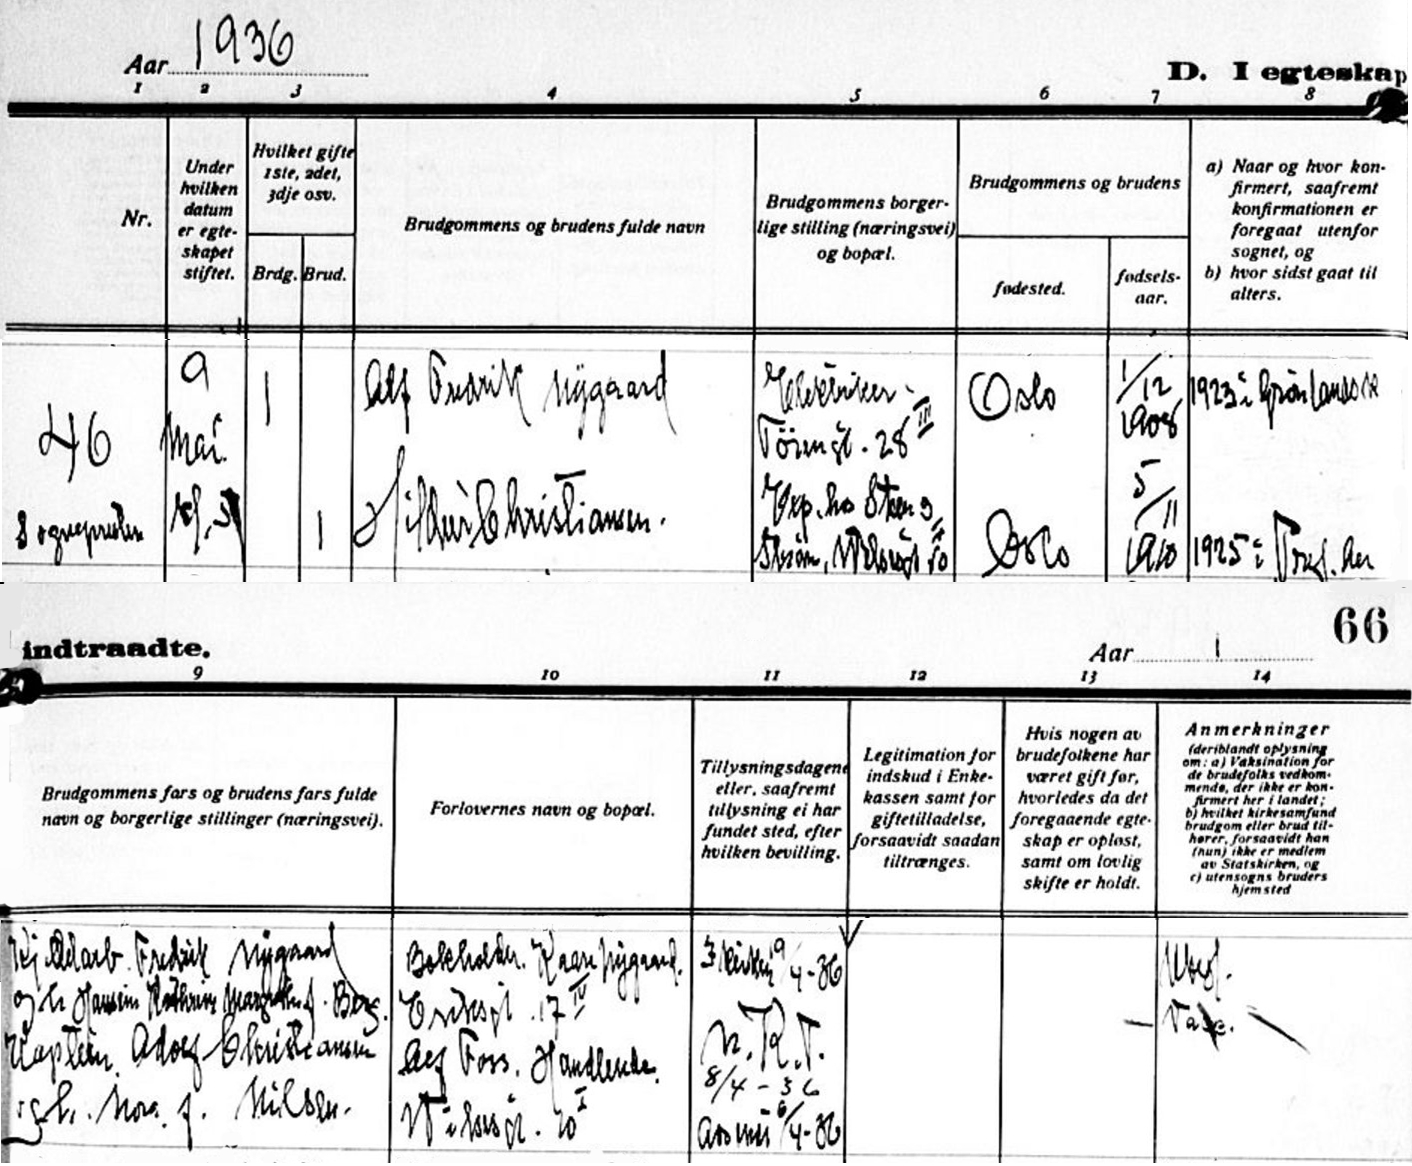 Aar 1936
D. I egteskap
1 2 3 4 5 6 7 8
Nr.
Under
hvilken
datum
er egte-
skapet
stiftet.
Hvilket gifte
1ste, 2det,
3dje osv.
Brdg. Brud.
Brudgommens og brudens fulde navn
Brudgommens borger-
lige stilling (næringsvei)
og bopæl.
Brudgommens og brudens
fødested.
fødsels-
aar.
a) Naar og hvor kon-
firmert, saafremt
konfirmationen er
foregaat utenfor
sognet, og
b) hvor sidst gaat til
alters.
46
Sognepresten
9
Mai
kl. 5
1
Alf Fredrik Nygaard
Elektriker
28 III
Oslo
1/12
1908
1923 i Grønlands k
1
Christiansen.
Exp. hos Steen &
Strøm,
Oslo
5/11
1910
1925 i
indtraadte.
Aar
66
9 10 11 12 13 14
Brudgommens fars og brudens fars fulde
navn og borgerlige stillinger (næringsvei).
Forlovernes navn og bopæl.
Tillysningsdagene
eller, saafremt
tillysning ei har
fundet sted, efter
hvilken bevilling.
Legitimation for
indskud i Enke-
kassen samt for
giftetilladelse,
forsaavidt saadan
tiltrænges.
Hvis nogen av
brudefolkene har
været gift før,
hvorledes da det
foregaaende egte-
skap er opløst,
samt om lovlig
skifte er holdt.
Anmerkninger
(deriblandt oplysning
om: a) Vaksination for
de brudefolks vedkom-
mende, der ikke er kon-
firmert her i landet;
b) hvilket kirkesamfund
brudgom eller brud til-
hører, forsaavidt han
(hun) ikke er medlem
av Statskirken, og
c) utensogns bruders
hjemsted
Fredrik Nygaard
og h. Berg.
Kaptein. Adolf Christiansen
og h. Nora f. Nilsen.
Bokholder. Kaare Nygaard.
Eriksgt. 17 IV
Alf Foss. Handlende.
I
9/4-36
N. K. T.
8/4 - 36
6/4-36